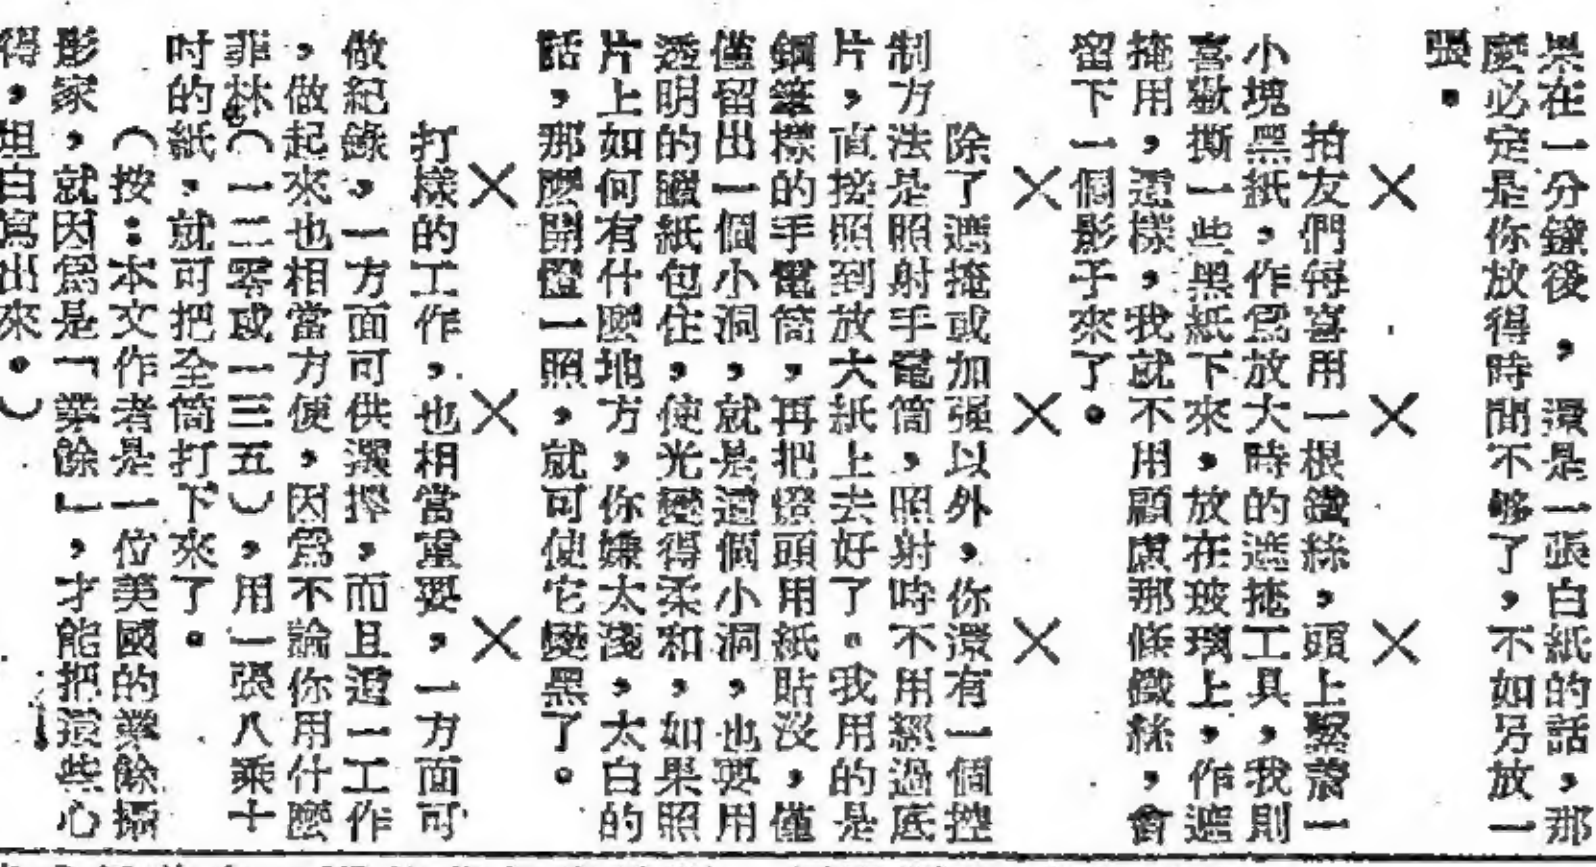 果在一分鐘後，還是一張白紙的話，那
麼必定是你放得時間不够了，不如另放一
張。
×××
拍友們每喜用一根鐵絲，頭上繫着一
小塊黑紙，作爲放大時的遮掩工具，我則
喜歡撕一些黑紙下來，放在玻璃上，作遮
掩用，這樣，我就不用顧慮那條鐵絲，會
留下一個影子來了。
×××
除了遮掩或加强以外，你還有一個控
制方法是照射手電筒，照射時不用經過底
片，直接照到放大紙上去好了。我用的是
鋼筆摽的手電筒，再把燈頭用紙貼沒，僅
僅留出一個小洞，就是這個小洞，也要用
透明的臘紙包住，使光變得柔和，如果照
片上如何有什麼地方，你嫌太淺，太白的
話，那麼開燈一照，就可使它變黑了。
×××
打樣的工作，也相當重要，一方面可
做紀錄，一方面可供選擇，而且這一工作
，做起來也相當方便，因爲不論你用什麼
菲林（一二零或一三五），用一張八乘十
吋的紙，就可把全筒打下來了。
（按：本文作者是一位美國的業餘攝
影家，就因爲是「業餘」，才能把這些心
得，坦白寫出來。）